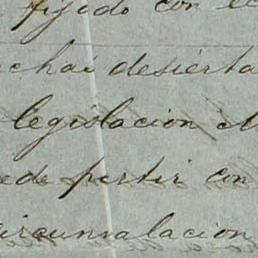 fijado con el
desierta
legislacion
ede partir con
circunvalacion